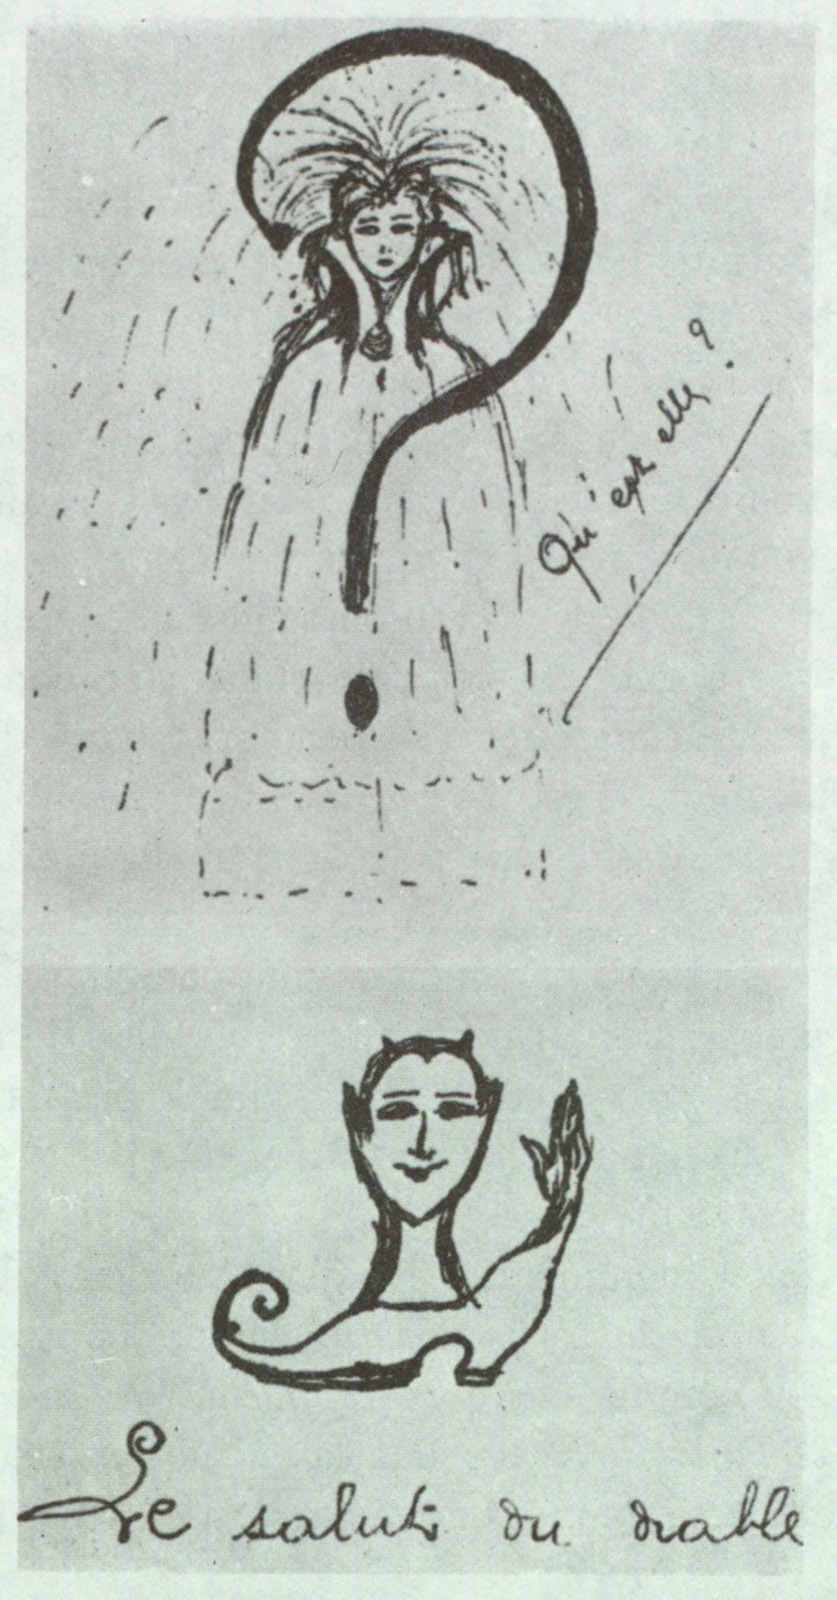 Qu'est elle ?
Le salut du diable